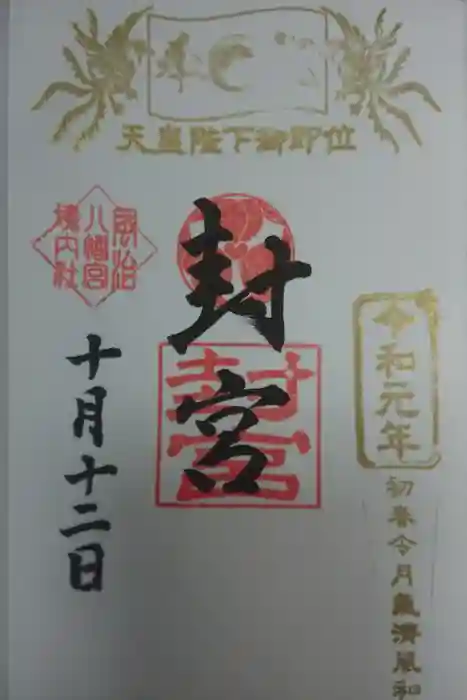 天皇陛下御即位
令和元年
初春令月氣淸風和
封宮
封宮
弥治
八幡宮
境内社
十月十二日